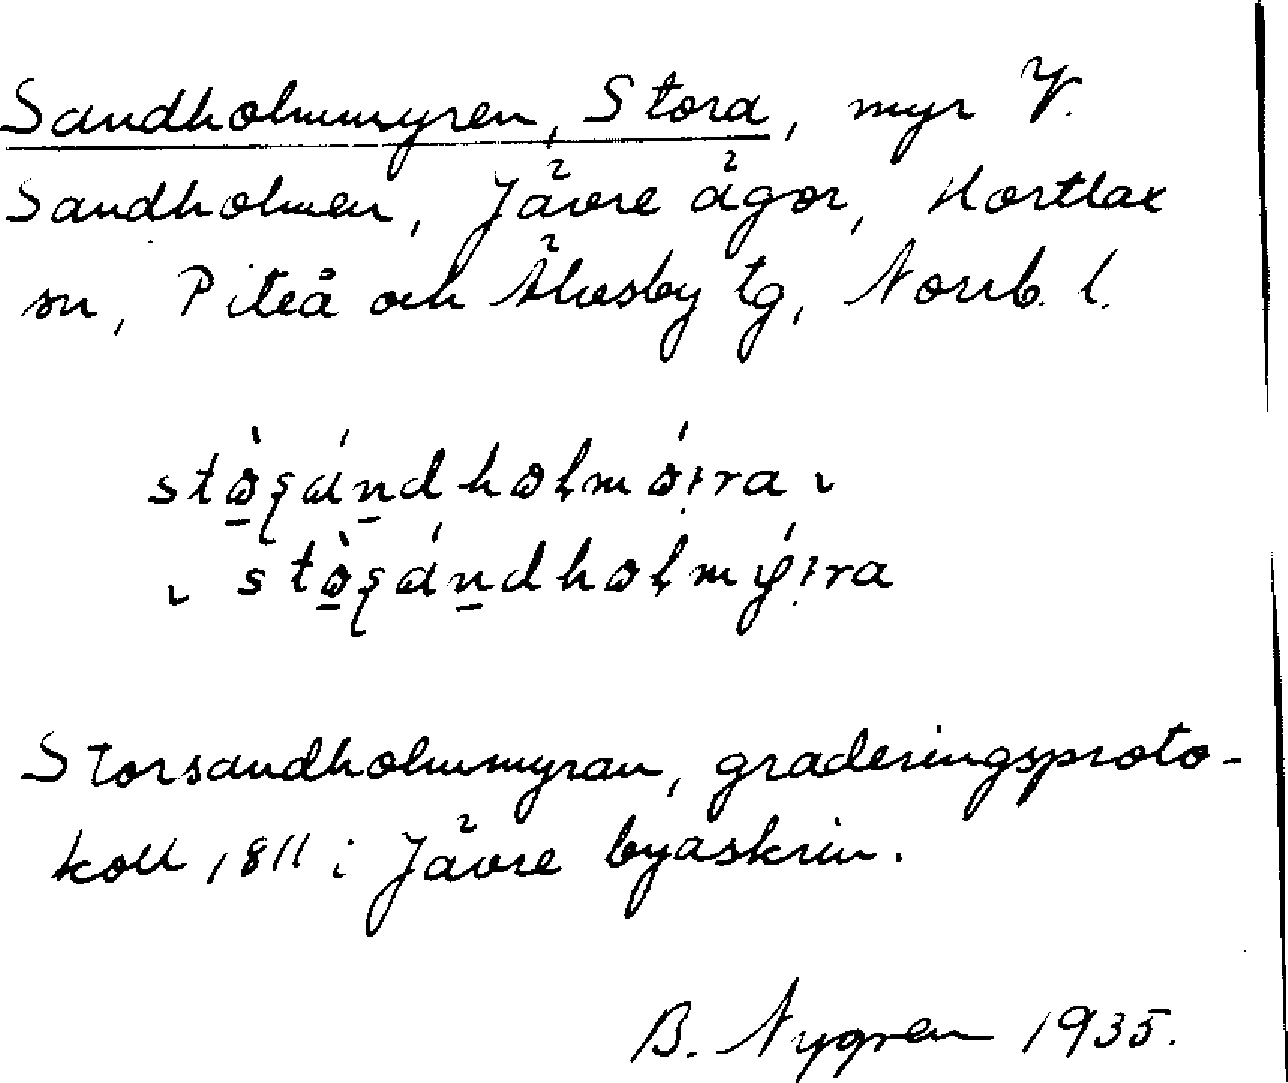 Sandholmmyren, Stora, myr V.
Sandholmen, Jävre ägor, Hortlax
sn, Piteå och Älvsby tg, Norrb. l.
Storsandholmmyran, graderingsproto-
koll 1811 i Jävre byaskrin.
B. Nygren 1935.